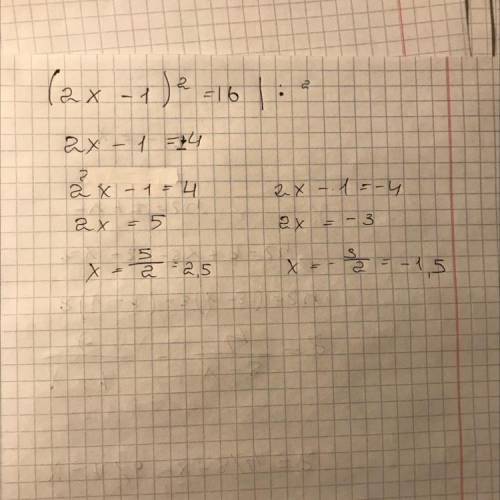 (2x - 1)² = 16 | : ²
2x - 1 = ±4
2x - 1 = 4
2x = 5
x = 5/2 = 2,5
2x - 1 = -4
2x = -3
x = -3/2 = -1,5